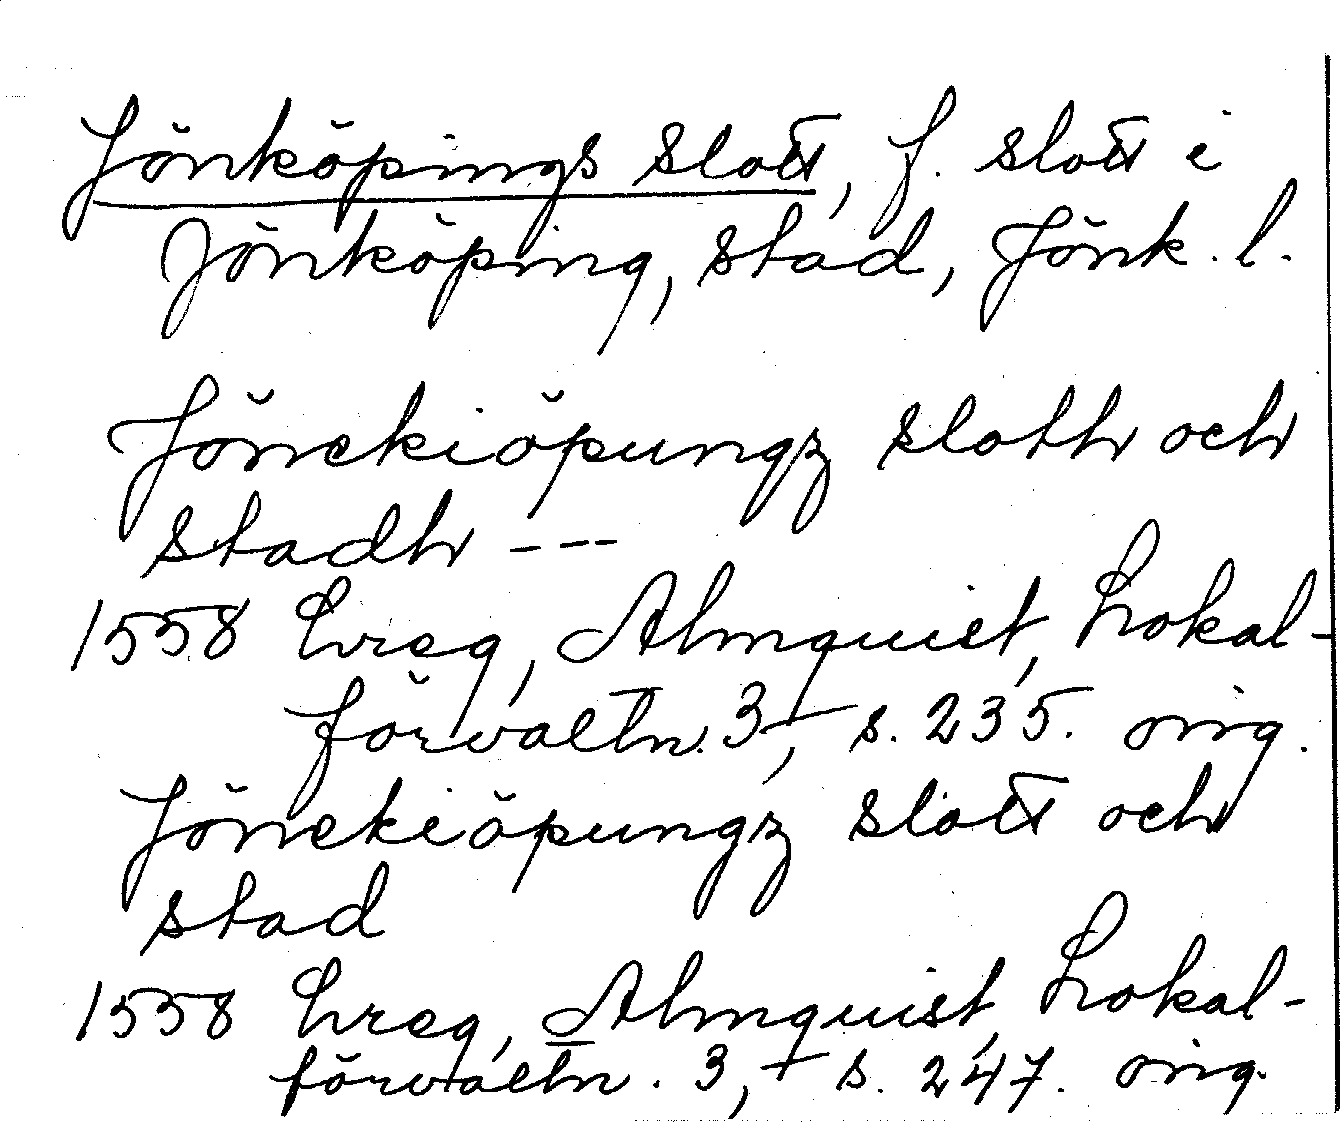 Jönköpings slott, f. slott i
Jönköping, stad, Jönk. l.
Jönekiöpungz sloth och
stadh ---
1558 Lreg, Almquist, Lokal-
förvaltn. 3, s. 235. orig.
Jönekiöpungz slott och
stad
1558 Lreg, Almquist, Lokal-
förvaltn. 3, s. 247. orig.